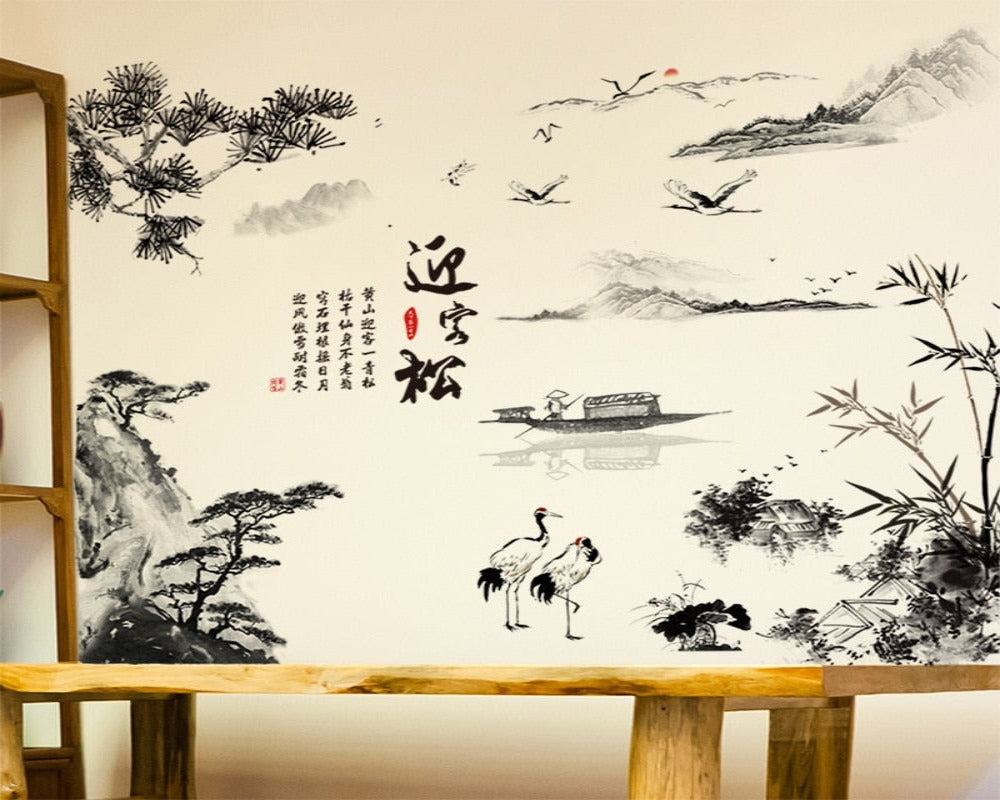 迎客松
黄山迎客一青松
枯干仙身不老翁
穿石埋根摇日月
迎风傲雪耐霜冬